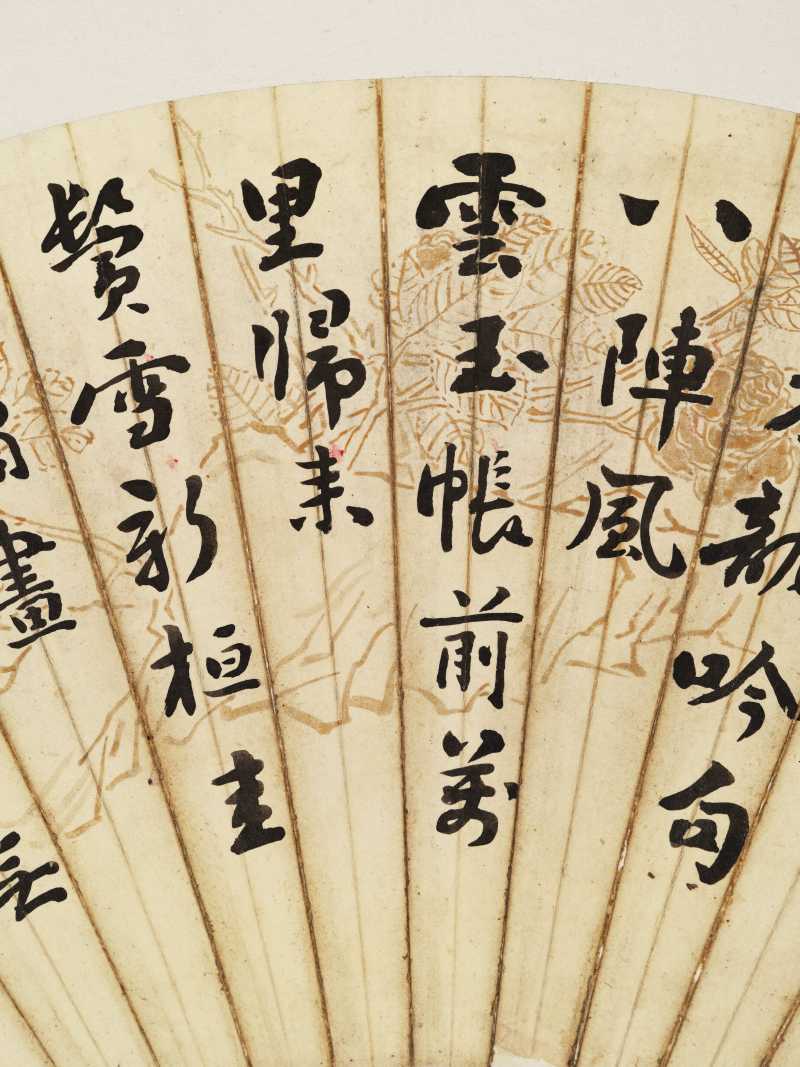 吟句
八陣風
雲玉帳前萬
里歸來
鬢雪新桓圭
畫